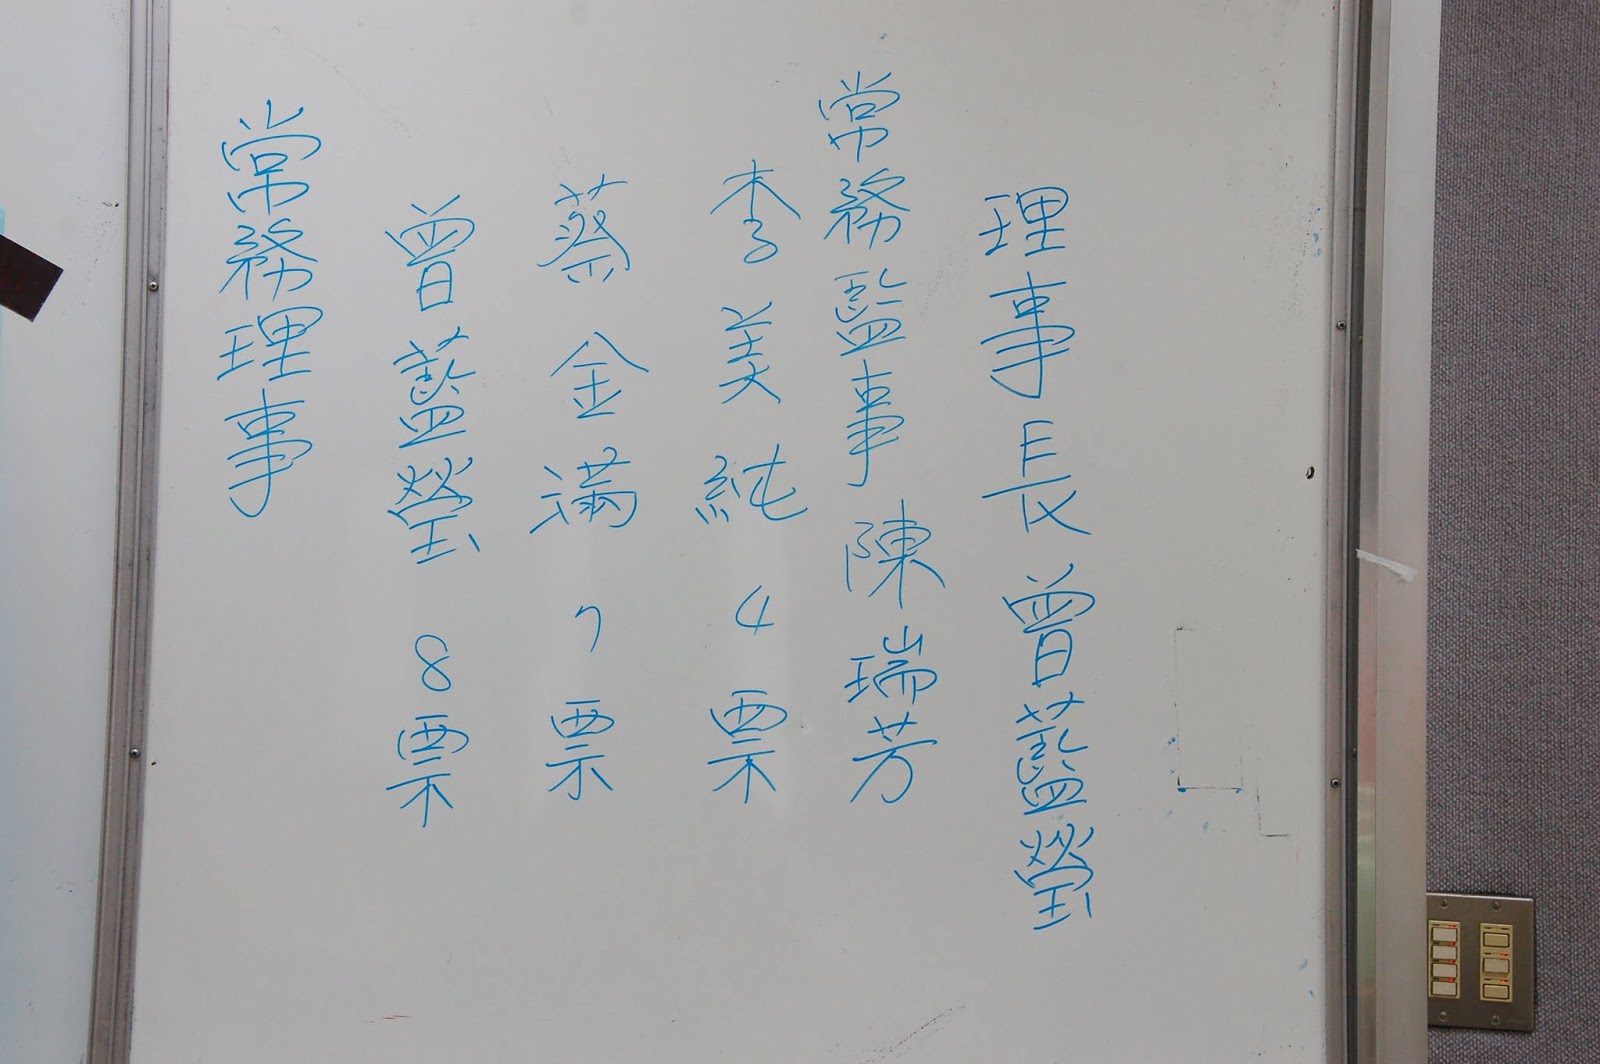 常務理事
曾藍瑩 8票
蔡金滿 7票
李美純 4票
常務監事 陳瑞芳
理事長 曾藍瑩